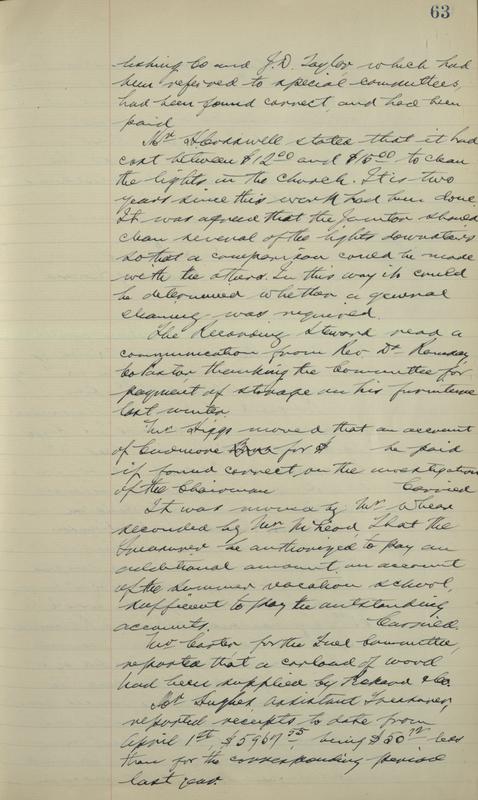 63
lishing Co and J.D. Taylor which had
been referred to special committees,
had been found correct, and had been
paid
Mr stated that it had
cost between $12.00 and $15.00 to clean
the lights in the church. It is two
years since this work had been done.
It was agreed that the Janitor should
clean several of the lights downstairs
so that a comparison could be made
with the others. In this way it could
be determined whether a general
cleaning was required.
The Recording Steward read a
communication from Rev Dr Ramsay
Co Pastor thanking the Committee for
payment of storage on his furniture
last winter.
Mr Higgs moved that an account
of for $ be paid
if found correct, on the investigation
of the Chairman Carried
It was moved by Mr
seconded by Mr McLeod, That the
Treasurer be authorized to pay an
additional amount, on account
of the summer vacation school,
sufficient to pay the outstanding
accounts. Carried.
Mr Carter for the Fuel Committee,
reported that a carload of wood
had been supplied by & Co.
Mr Hughes, Assistant Treasurer,
reported receipts to date from
April 1st, $5967.75, being less
than for the corresponding period
last year.